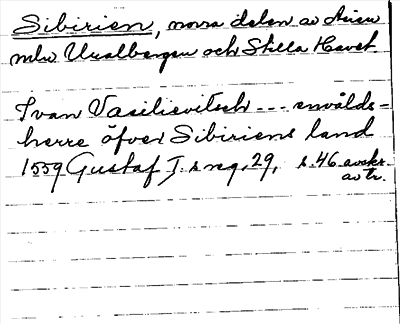 Sibirien, norra delen av Asien
mlw Uralbergen och Stilla Havet
Ivan Vasilievitsch --- envålds-
herre öfver Sibiriens land
1559 Gustaf I.s reg. 29, s. 46 avskr.
av tr.